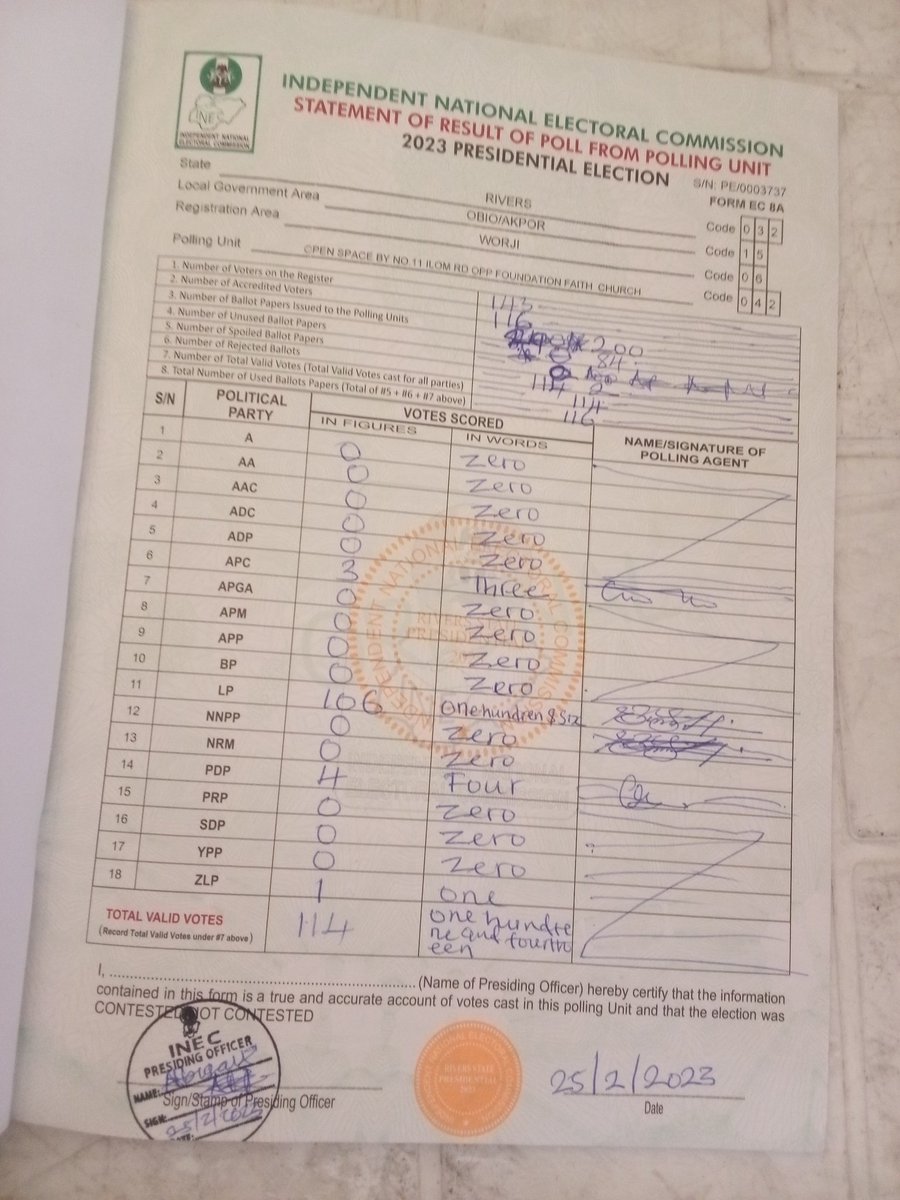 INEC
INDEPENDENT NATIONAL ELECTORAL COMMISSION
INDEPENDENT NATIONAL ELECTORAL COMMISSION
STATEMENT OF RESULT OF POLL FROM POLLING UNIT
2023 PRESIDENTIAL ELECTION
S/N: PE/0003737
FORM EC 8A
State RIVERS Code 0 3 2
Local Government Area OBIO/AKPOR Code 1 5
Registration Area WORJI Code 0 6
Polling Unit OPEN SPACE BY NO 11 ILOM RD OPP FOUNDATION FAITH CHURCH Code 0 4 2
1. Number of Voters on the Register 143
2. Number of Accredited Voters 116
3. Number of Ballot Papers Issued to the Polling Units 200
4. Number of Unused Ballot Papers 84
5. Number of Spoiled Ballot Papers 0
6. Number of Rejected Ballots 2
7. Number of Total Valid Votes (Total Valid Votes cast for all parties) 114
8. Total Number of Used Ballots Papers (Total of #5 + #6 + #7 above) 116
S/N POLITICAL PARTY VOTES SCORED NAME/SIGNATURE OF POLLING AGENT
IN FIGURES IN WORDS
1 A 0 Zero
2 AA 0 Zero
3 AAC 0 Zero
4 ADC 0 Zero
5 ADP 0 Zero
6 APC 3 Three
7 APGA 0 Zero
8 APM 0 Zero
9 APP 0 Zero
10 BP 0 Zero
11 LP 106 One hundren & Six
12 NNPP 0 Zero
13 NRM 0 Zero
14 PDP 4 Four
15 PRP 0 Zero
16 SDP 0 Zero
17 YPP 0 Zero
18 ZLP 1 One
TOTAL VALID VOTES 114
(Record Total Valid Votes under #7 above)
I, (Name of Presiding Officer) hereby certify that the information
contained in this form is a true and accurate account of votes cast in this polling Unit and that the election was
CONTESTED/NOT CONTESTED
INEC
PRESIDING OFFICER
NAME:
Sign/Stamp of Presiding Officer
SIGN:
25/2/2023
DATE:
RIVERS STATE
PRESIDENTIAL
2023
25/2/2023
Date